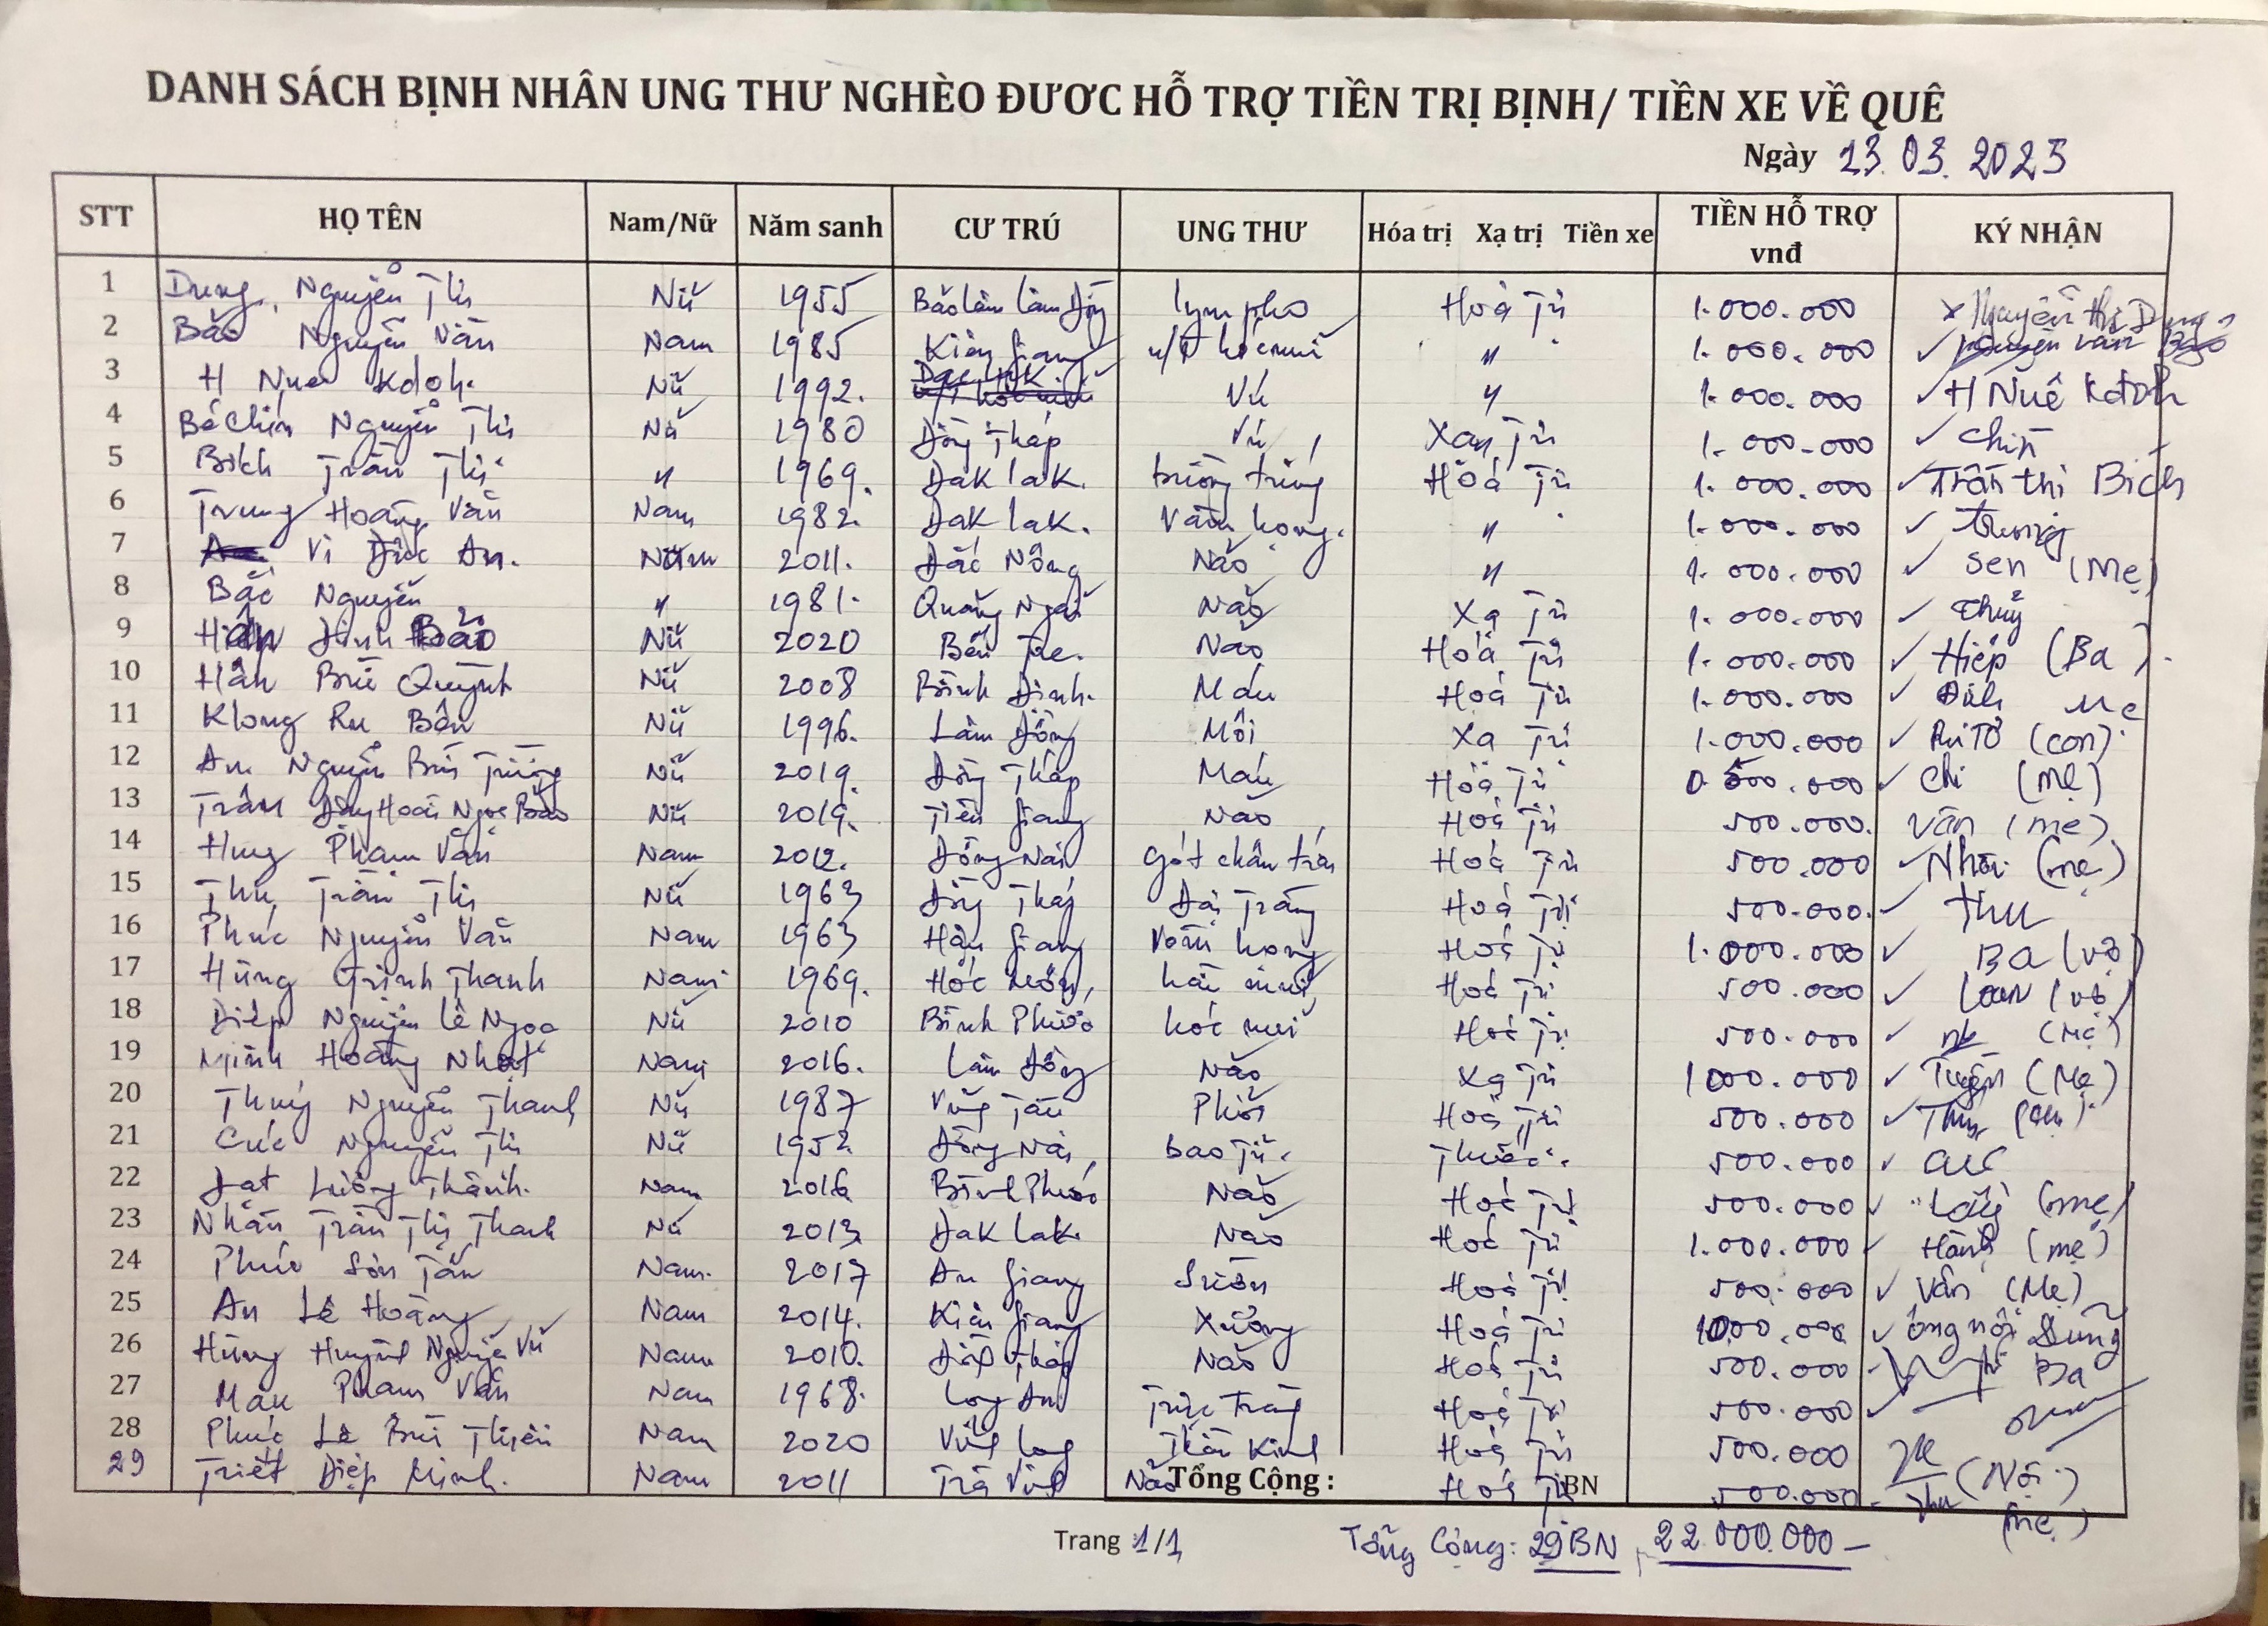 DANH SÁCH BỊNH NHÂN UNG THƯ NGHÈO ĐƯƠC HỖ TRỢ TIỀN TRỊ BỊNH/ TIỀN XE VỀ QUÊ
Ngày 23.03.2023
STT HỌ TÊN Nam/Nữ Năm sanh CƯ TRÚ UNG THƯ Hóa trị Xạ trị Tiền xe TIỀN HỖ TRỢ vnđ KÝ NHẬN
1 Dung, Nguyễn Thị Nữ 1955 Bảo Lâm Lâm Đồng lympho Hoá Trị 1.000.000 x Nguyễn thị Dung
2 Bảo Nguyễn Văn Nam 1985 Kiên Giang hốc mũi " 1.000.000 ✓ Nguyễn Văn Bảo
3 H Nue Kdoh. Nữ 1992. Dac Lak Vú " 1.000.000 ✓ H Nuê Kđoh
4 Bé Chín Nguyễn Thị Nữ 1980 Đồng Tháp Vú Xạ Trị 1.000.000 ✓ Chín
5 Bích Trần Thị " 1969. Đak Lak. buồng trứng Hoá Trị 1.000.000 ✓ Trần thị Bích
6 Trung Hoàng Văn Nam 1982. Đak Lak. Vòm họng. " 1.000.000 ✓ trung
7 Vi Đức An. Nam 2011. Đắc Nông Não " 1.000.000 ✓ Sen (Mẹ)
8 Bắc Nguyễn " 1981. Quảng Ngãi Não Xạ Trị 1.000.000 ✓ Thủy
9 Hân Đinh Bảo Nữ 2020 Bến Tre. Não Hoá Trị 1.000.000 ✓ Hiếp (Ba).
10 Hân Bùi Quỳnh Nữ 2008 Bình Định. Máu Hoá Trị 1.000.000 ✓ Mẹ
11 Klong Ru Bên Nữ 1996. Lâm Đồng Môi Xạ Trị 1.000.000 ✓ (con)
12 An Nguyễn Bùi Tường Nữ 2019. Đồng Tháp Máu Hoá Trị 0.500.000 ✓ Chi (mẹ)
13 Trâm Hoài Ngọc Bảo Nữ 2019. Tiền Giang Não Hoá Trị 500.000. Vân (mẹ)
14 Hưng Phạm Văn Nam 2012. Đồng Nai Gót chân trái Hoá Trị 500.000 ✓ Nhài (mẹ)
15 Thu, Trần Thị Nữ 1963 Đồng Tháp Đại Tràng Hoá Trị 500.000. ✓ Thu
16 Phúc Nguyễn Văn Nam 1963 Hậu Giang Vòm họng Hoá Trị 1.000.000 ✓ Ba (vợ)
17 Hùng Trịnh Thanh Nam 1969. Hóc Môn, hốc mũi Hoá Trị 500.000 ✓ Loan (vợ)
18 Diệp Nguyễn Lê Ngọc Nữ 2010 Bình Phước hốc mũi Hoá Trị 500.000 ✓ (Mẹ)
19 Minh Hoàng Nhật Nam 2016. Lâm Đồng Não Xạ Trị 1000.000 ✓ (Mẹ)
20 Thuý Nguyễn Thanh Nữ 1987 Vũng Tàu Phổi Hoá Trị 500.000 ✓
21 Cúc Nguyễn Thị Nữ 1952. Đồng Nai, bao Tử. Thuốc. 500.000 ✓ Cúc
22 Đạt Lương Thành. Nam 2016 Bình Phước Não Hoá Trị 500.000 ✓ (mẹ)
23 Nhân Trần Thị Thanh Nữ 2013 Dak Lak. Não Hoá Trị 1.000.000 ✓ Hạnh (mẹ)
24 Phúc Sơn Tấn Nam. 2017 An Giang Sườn Hoá Trị 500.000 ✓ Vân (Mẹ)
25 An Lê Hoàng Nam 2014. Kiên Giang Xương Hoá Trị 1000.000 ✓ ông nội Dũng
26 Hùng Huỳnh Nguyễn Vũ Nam 2010. Đồng Tháp Não Hoá Trị 500.000 Ba
27 Mau Phạm Văn Nam 1968. Long An Trực Tràng Hoá Trị 500.000 ✓
28 Phúc Lê Bùi Thiện Nam 2020 Vĩnh Long Thần Kinh Hoá Trị 500.000 (Nội)
29 Triết Diệp Minh. Nam 2011 Trà Vinh Não Tổng Cộng : Hoá Trị BN 500.000 (mẹ)
Trang 1/1 Tổng Cộng: 29BN, 22.000.000 –